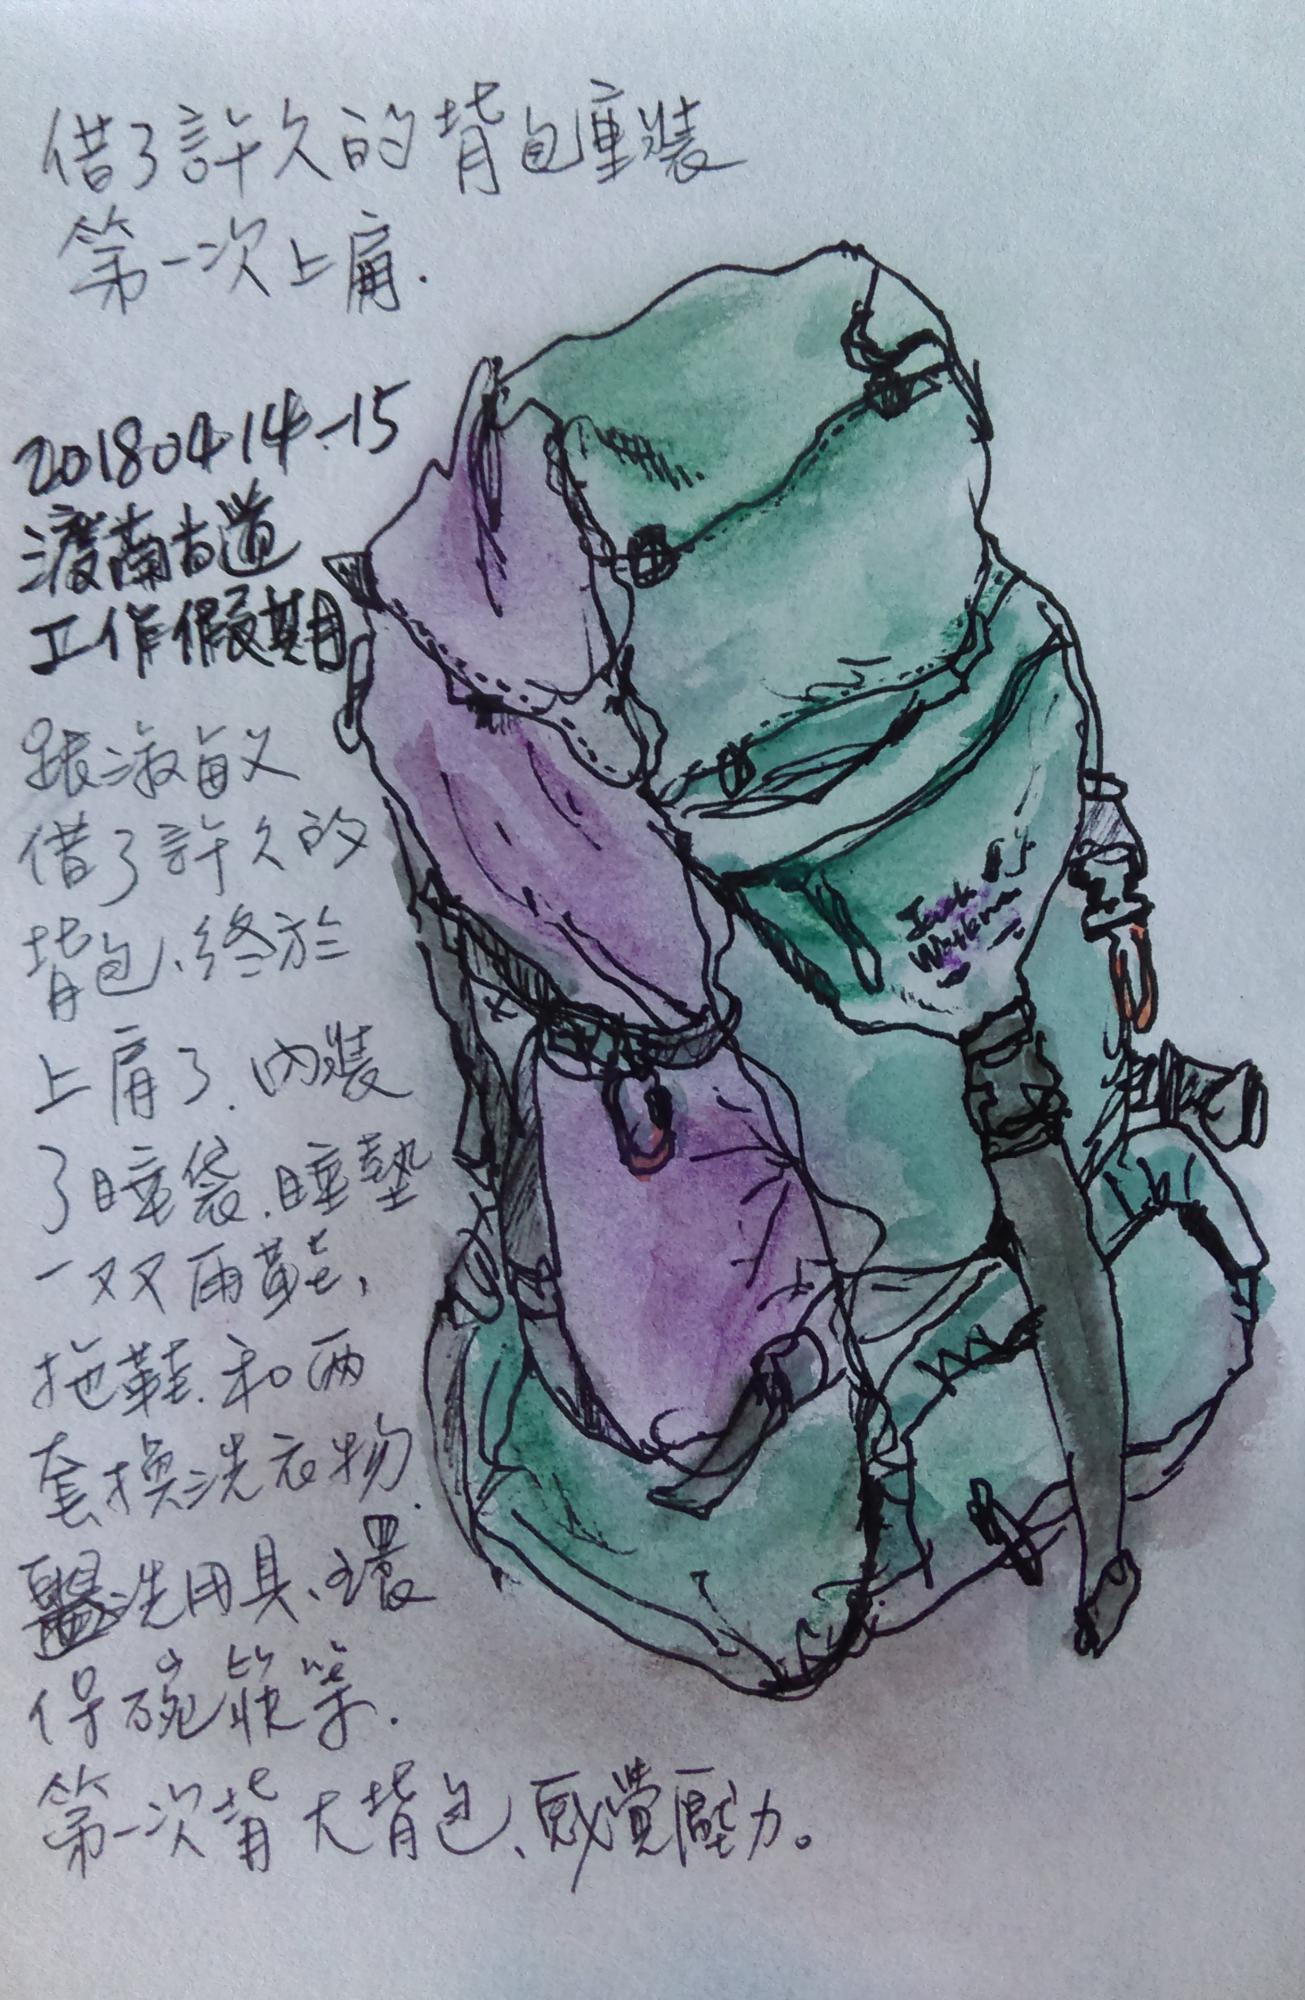 借了許久的背包重裝
第一次上肩.
20180414-15
渡南古道
工作假期
跟淑敏又
借了許久的
背包、終於
上肩了.內裝
了睡袋.睡墊
一双雨鞋、
拖鞋.和兩
套換洗衣物.
盥洗用具、環
保碗筷等.
第一次背大背包、感覺壓力。
Jack
Wolfskin